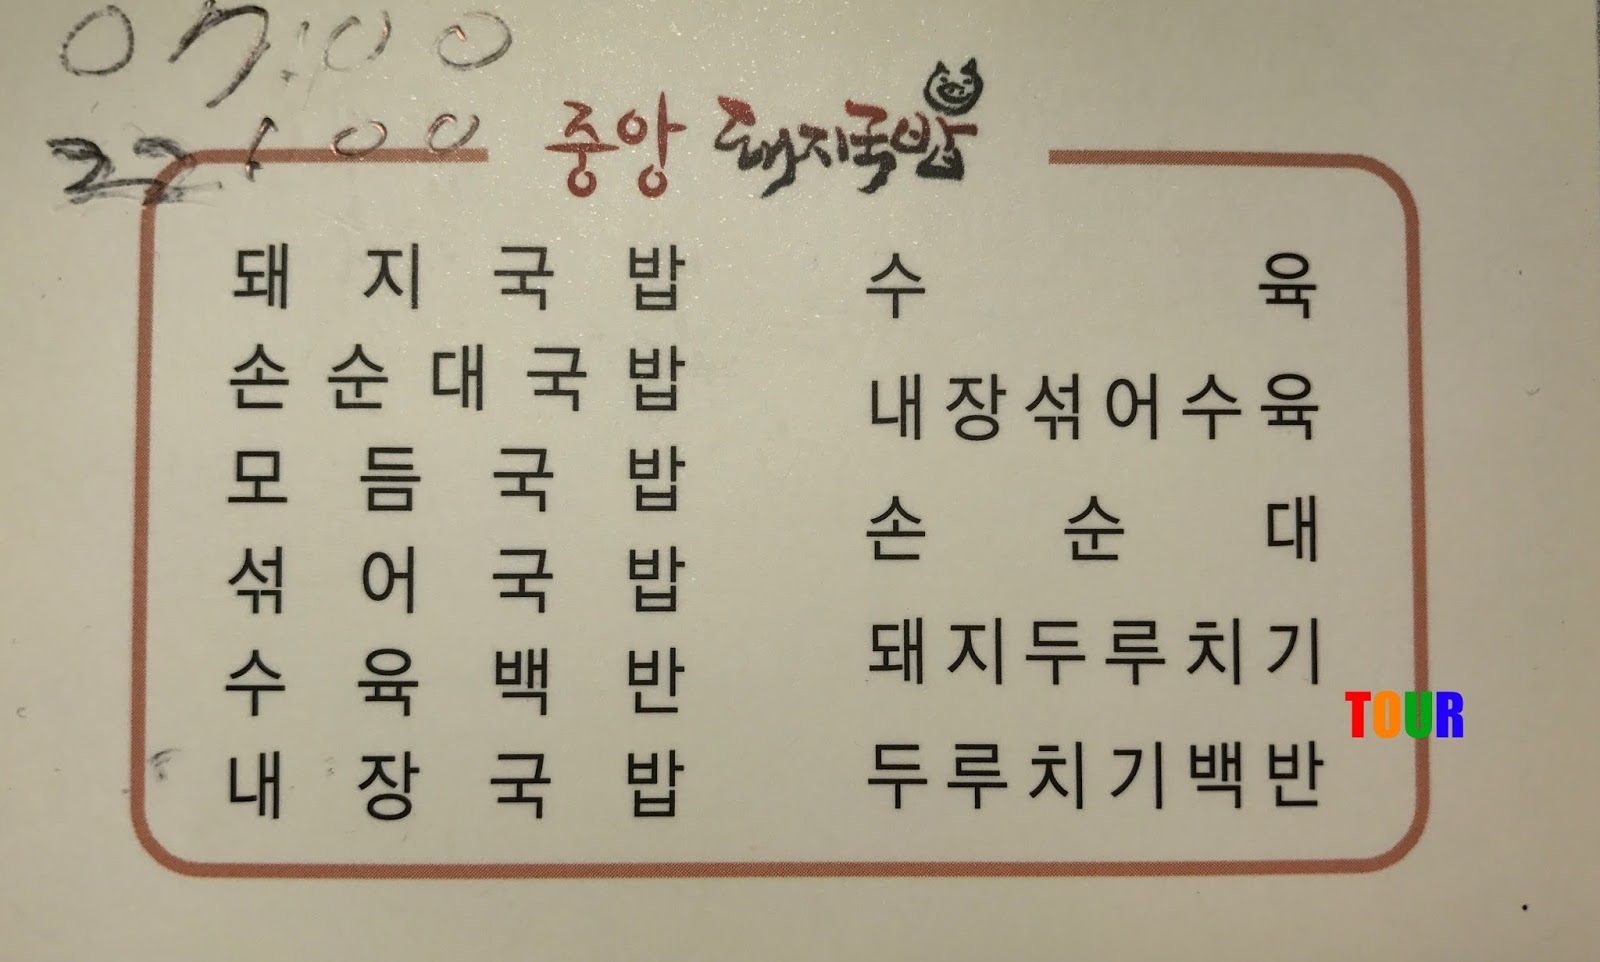 07:00
22:00
중앙 돼지국밥
돼지국밥
손순대국밥
모듬국밥
섞어국밥
수육백반
내장국밥
수육
내장섞어수육
손순대
돼지두루치기
두루치기백반
TOUR